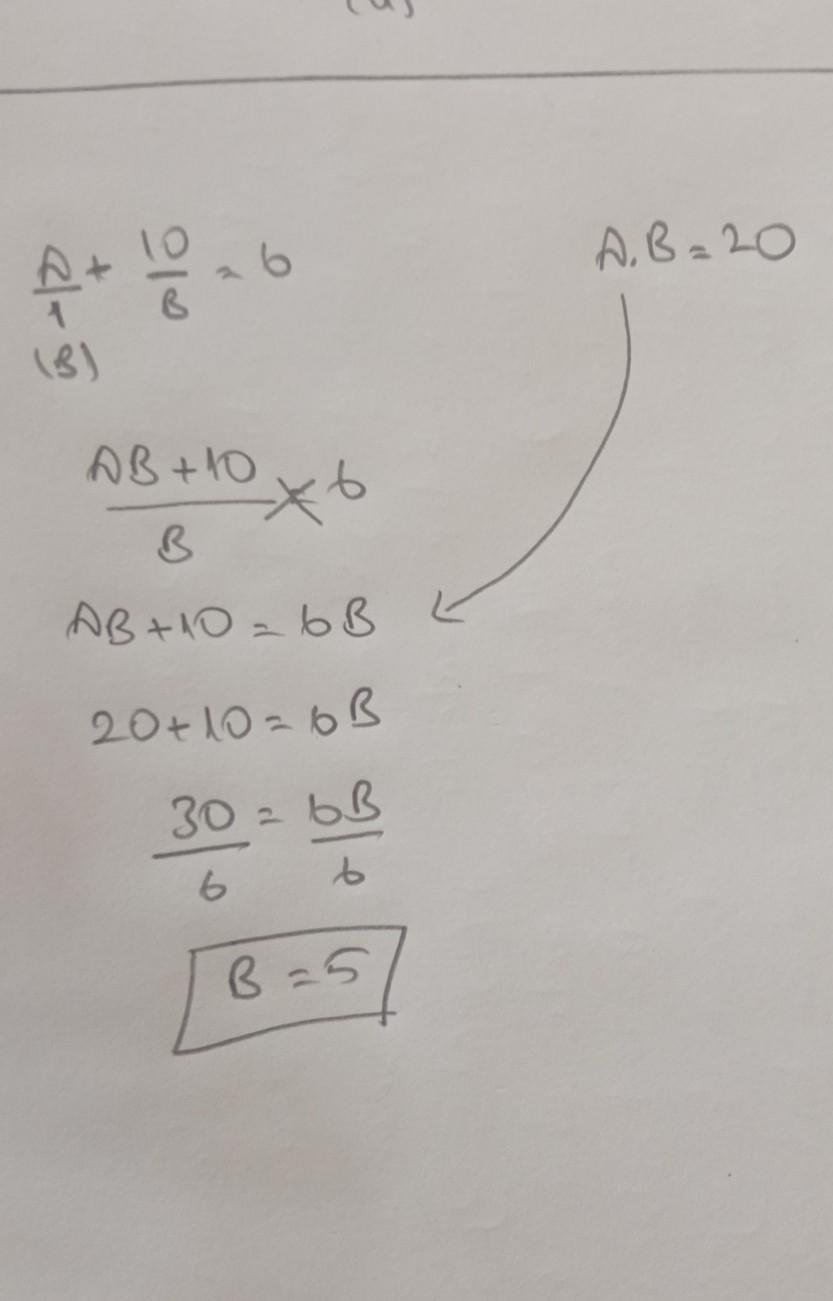 A/1 + 10/B = 6
(B)
A.B = 20
AB + 10 / B × 6
AB + 10 = 6B
20 + 10 = 6B
30/6 = 6B/6
B = 5